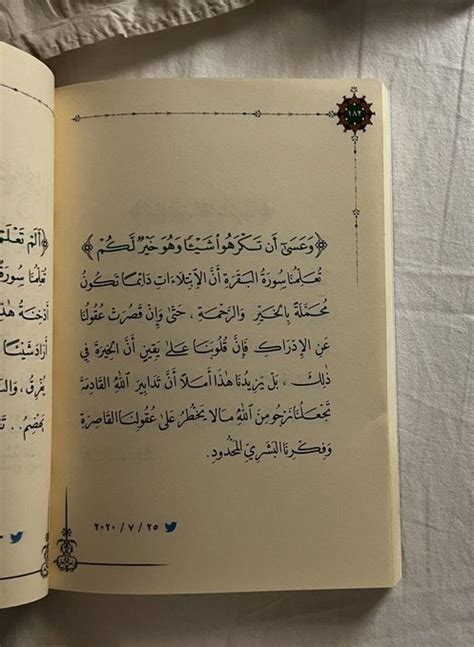 ١٨٢
﴿وَعَسَىٰٓ أَن تَكْرَهُوا۟ شَيْـًٔا وَهُوَ خَيْرٌ لَّكُمْ﴾
تُعَلِّمُنَا سُورَةُ البَقَرَةِ أَنَّ الِابْتِلَاءَاتِ دَائِمًا تَكُونُ
مُحَمَّلَةً بِالخَيْرِ وَالرَّحْمَةِ ، حَتَّىٰ وَإِنْ قَصُرَتْ عُقُولُنَا
عَنِ الإِدْرَاكِ فَإِنَّ قُلُوبَنَا عَلَىٰ يَقِينٍ أَنَّ الخِيرَةَ فِي
ذٰلِكَ ، بَلْ يَزِيدُنَا هٰذَا أَمَلًا أَنَّ تَدَابِيرَ اللهِ القَادِمَةَ
تَجْعَلُنَا نَرْجُو مِنَ اللهِ مَا لَا يَخْطُرُ عَلَىٰ عُقُولِنَا القَاصِرَةِ
وَفِكْرِنَا البَشَرِيِّ المَحْدُودِ.
٢٠٢٠ / ٧ / ٢٥
﴿أَلَمْ تَعْلَمْ
تُعَلِّمُنَا سُورَةُ